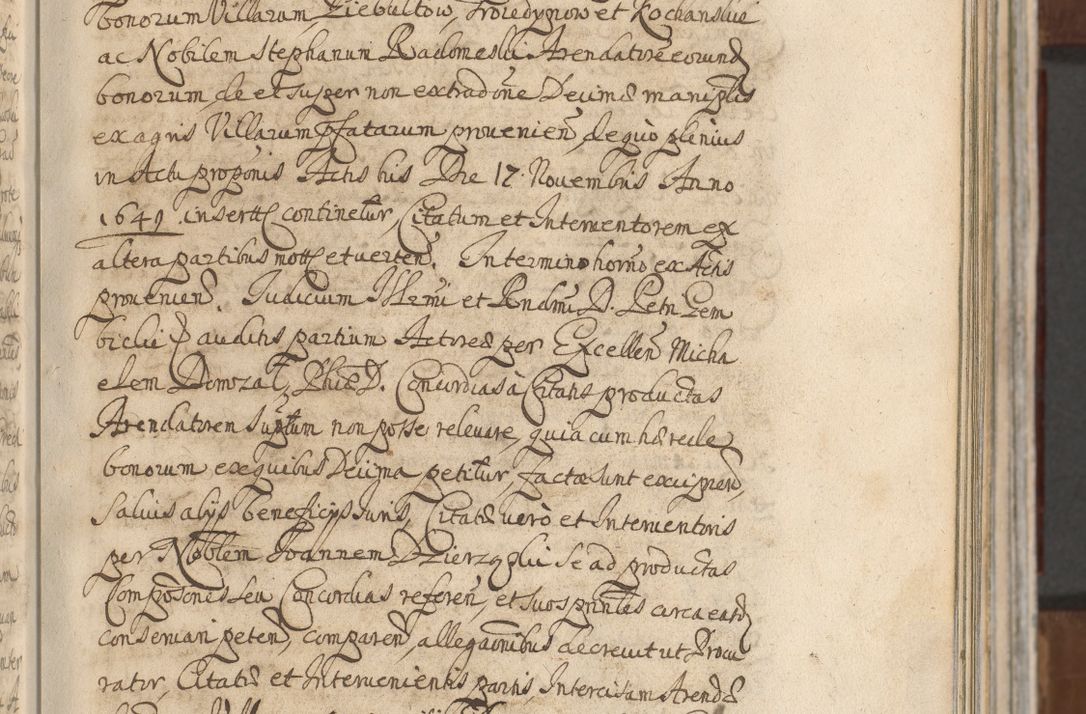 bonorum Villarum Ziebultow, Troiedynow et Kochanskie
ac Nobilem Stephanum Radomeski Arendatorē eorund
bonorum, de et super non extradoñe Decimæ maniplis
ex agris Villarum pfatarum prouenien, de quò plenius
in Actu propõnis Actis his Die 17 Nouembris Anno
1649 insertt continetur, Citatum et Interuentorem ex
altera partibus mott et uerten. In termino horño ex Actis
prouenien. Iudicium Illrmi et Rndmi D. Petri Gem
bicki auditis partium Actoreæ per Excellen Micha
elem Domozat, Phiæ D. Concordias à Citatis productas
Arendatorem suptum non posse releuare, quia cum hærede
bonorum ex quibus Decima petitur, factæ sunt excipien,
Saluis alijs beneficijs iuris, Citatæ verò et Interuentoris
per Noblem Joannem Dzierzgski se ad productas
Compoñes seu Concordias referen, et suos prinles circa eand
conseruari peten, comparen, allegaõnibus decreuit ut Procu
rator, Citatæ et Interuenientis partis, Intercisam Arendæ